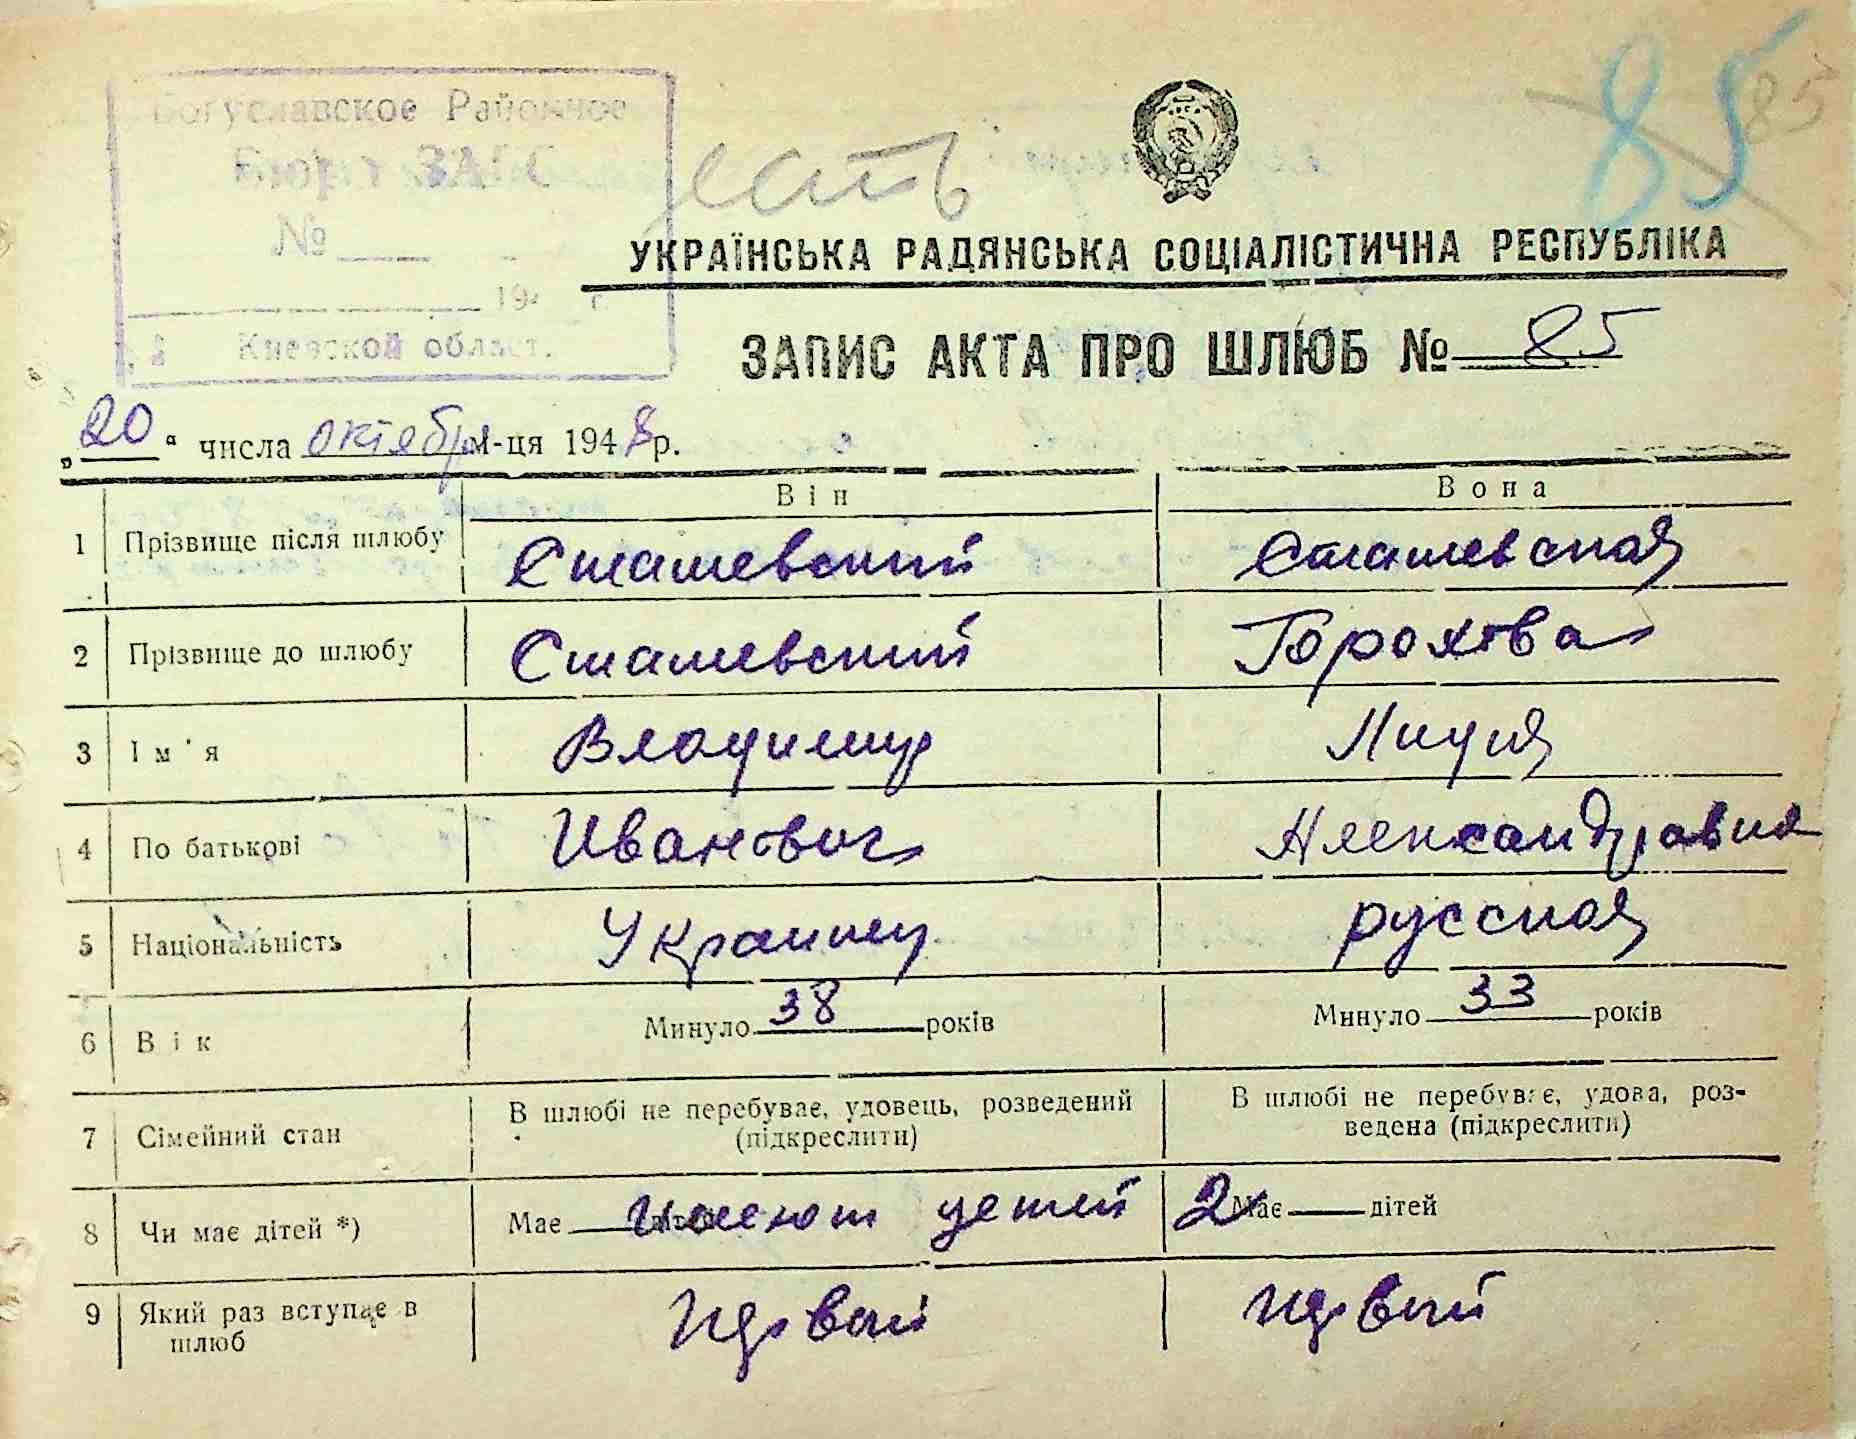 Богуславское Районное
Бюро ЗАГС
№
194 г.
Киевской област.
есть
85
85
УКРАЇНСЬКА РАДЯНСЬКА СОЦІАЛІСТИЧНА РЕСПУБЛІКА
ЗАПИС АКТА ПРО ШЛЮБ № 85
„20“ числа октября м-ця 1948 р.
Він Вона
1 Прізвище після шлюбу Сташевский Сташевская
2 Прізвище до шлюбу Сташевский Горохова
3 Ім'я Владимир Лидия
4 По батькові Иванович Александровна
5 Національність Украинец русская
6 Вік Минуло 38 років Минуло 33 років
7 Сімейний стан В шлюбі не перебуває, удовець, розведений (підкреслити) В шлюбі не перебуває, удова, роз-
ведена (підкреслити)
8 Чи має дітей *) Має имеют детей 2 Має дітей
9 Який раз вступає в шлюб первый первый